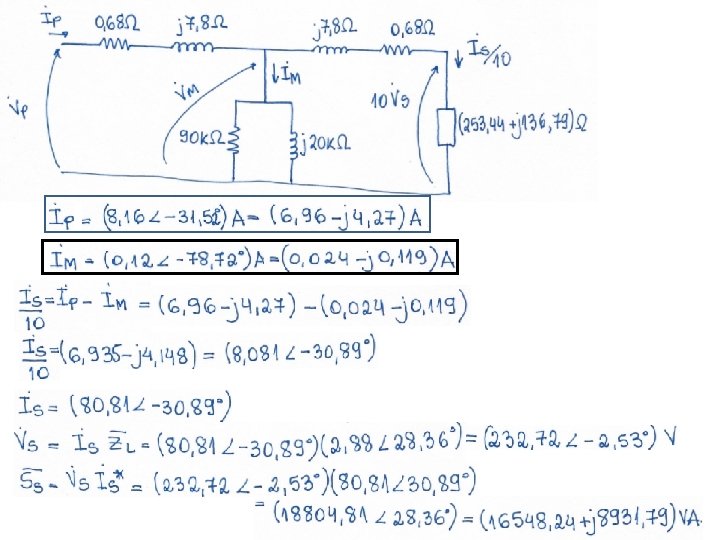 İp 0,68Ω j7,8Ω j7,8Ω 0,68Ω
İs/10
İM
V̇M
V̇p
10V̇s
90kΩ j20kΩ (253,44+j136,79)Ω
İp = (8,16∠-31,52°)A = (6,96-j4,27)A
İM = (0,12∠-78,72°)A = (0,024-j0,119)A
İs/10 = İp - İM = (6,96-j4,27) - (0,024-j0,119)
İs/10 = (6,935-j4,148) = (8,081∠-30,89°)
İs = (80,81∠-30,89°)
V̇s = İs Z̄L = (80,81∠-30,89°)(2,88∠28,36°) = (232,72∠-2,53°) V
S̄s = V̇s İs* = (232,72∠-2,53°)(80,81∠30,89°)
= (18804,81∠28,36°) = (16548,24+j8931,79) VA.